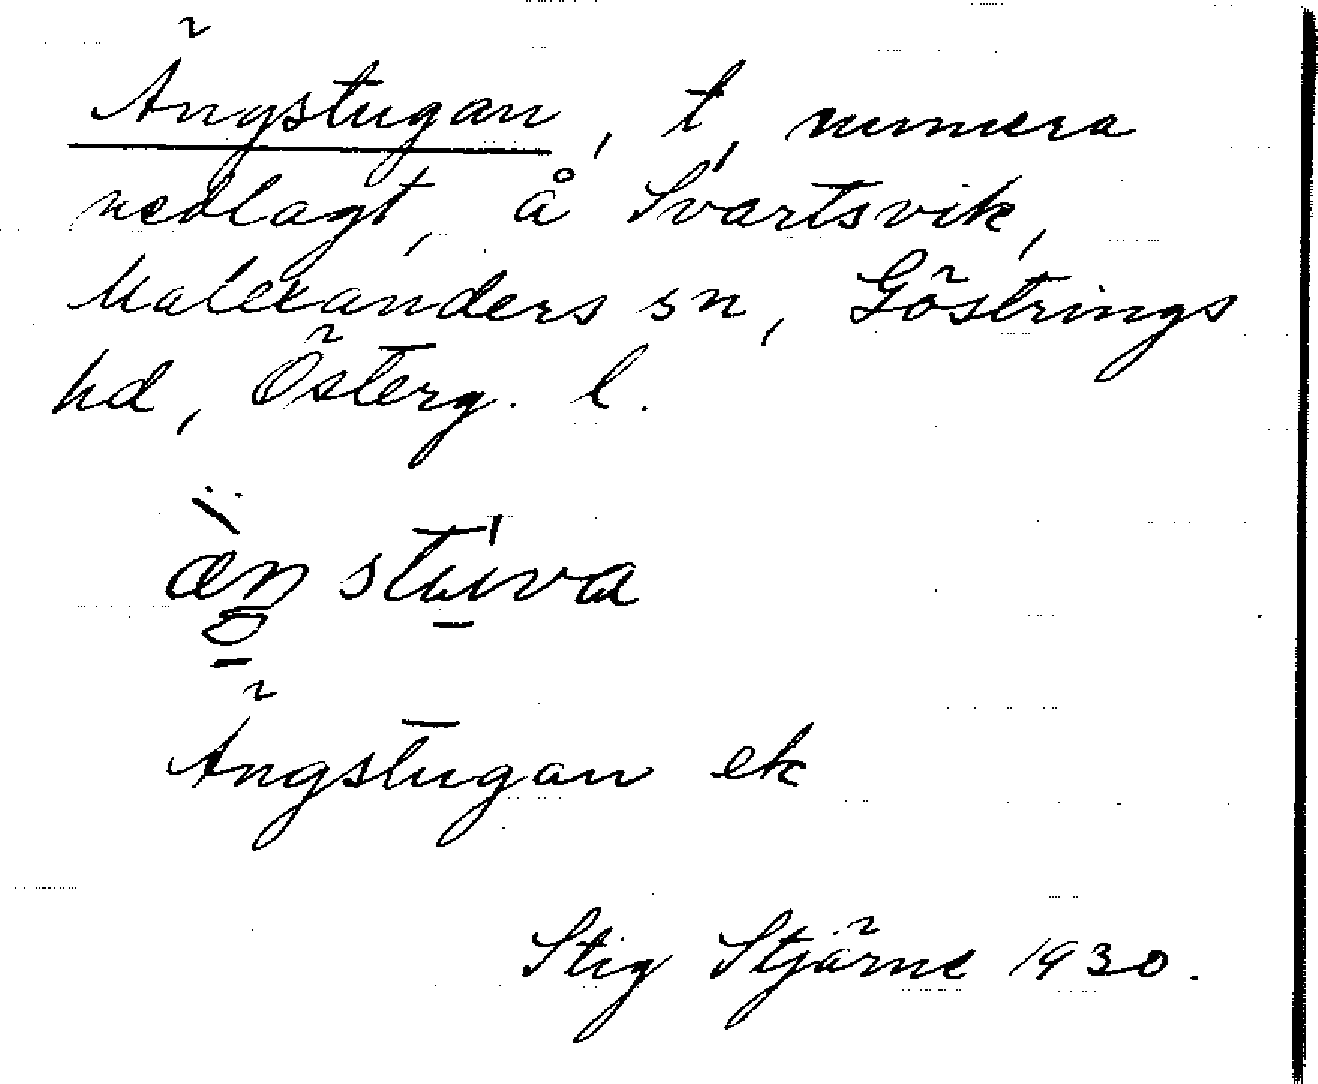 Ängstugan, t, numera
nedlagt, å Svartsvik,
Malexanders sn, Göstrings
hd, Österg. l.
änstuva
Ängstugan ek
Stig Stjärne 1930.